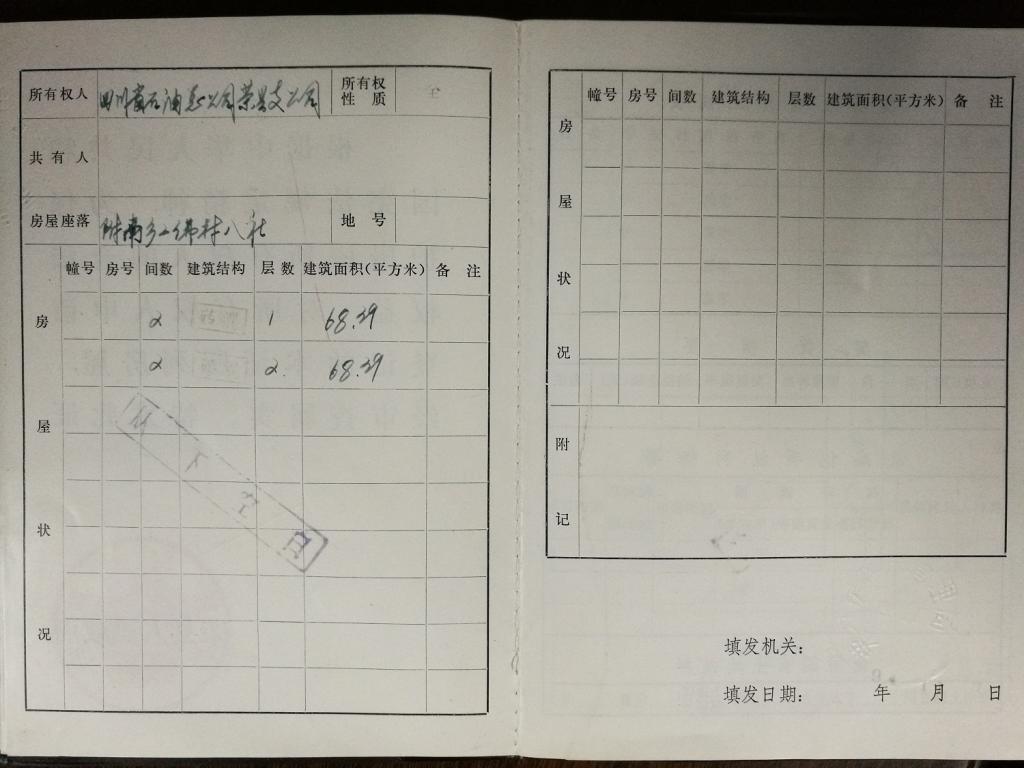 所有权人 四川省石油总公司荣县支公司 所有权性质 全
共有人
房屋座落 附南乡一纬村八社 地号
房屋状况
幢号 房号 间数 建筑结构 层数 建筑面积(平方米) 备注
2 砖混 1 68.29
2 2 68.29
以下空白
房屋状况
幢号 房号 间数 建筑结构 层数 建筑面积(平方米) 备注
附记
填发机关:
填发日期: 年 月 日